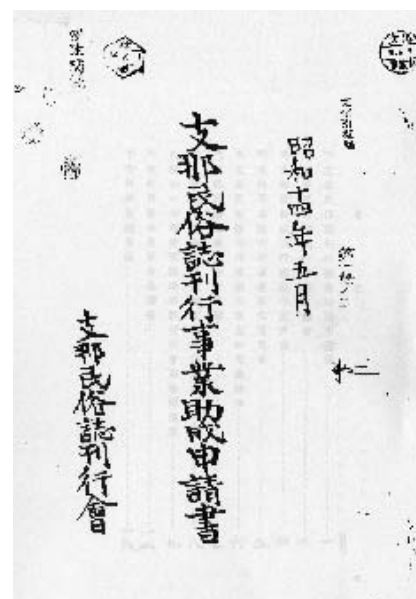 昭和十四年五月
支那民俗誌刊行事業助成申請書
支那民俗誌刊行會